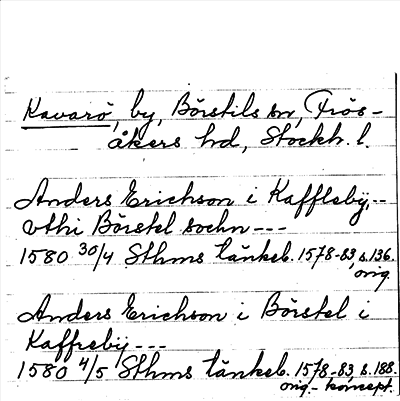 Kavarö, by, Börstils sn, Frös-
åkers hd, Stockh. l.
Anders Erichson i Kaffleby,--
vthi Börstel sochn---
1580 30/4 Sthms tänkeb. 1578-83, s. 136.
orig.
Anders Erichson i Börstel i
Kaffreby---
1580 4/5 Sthms tänkeb. 1578-83, s. 188.
orig.-koncept.